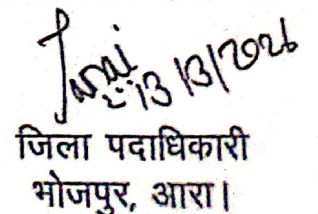 13/3/2026
जिला पदाधिकारी
भोजपुर, आरा।